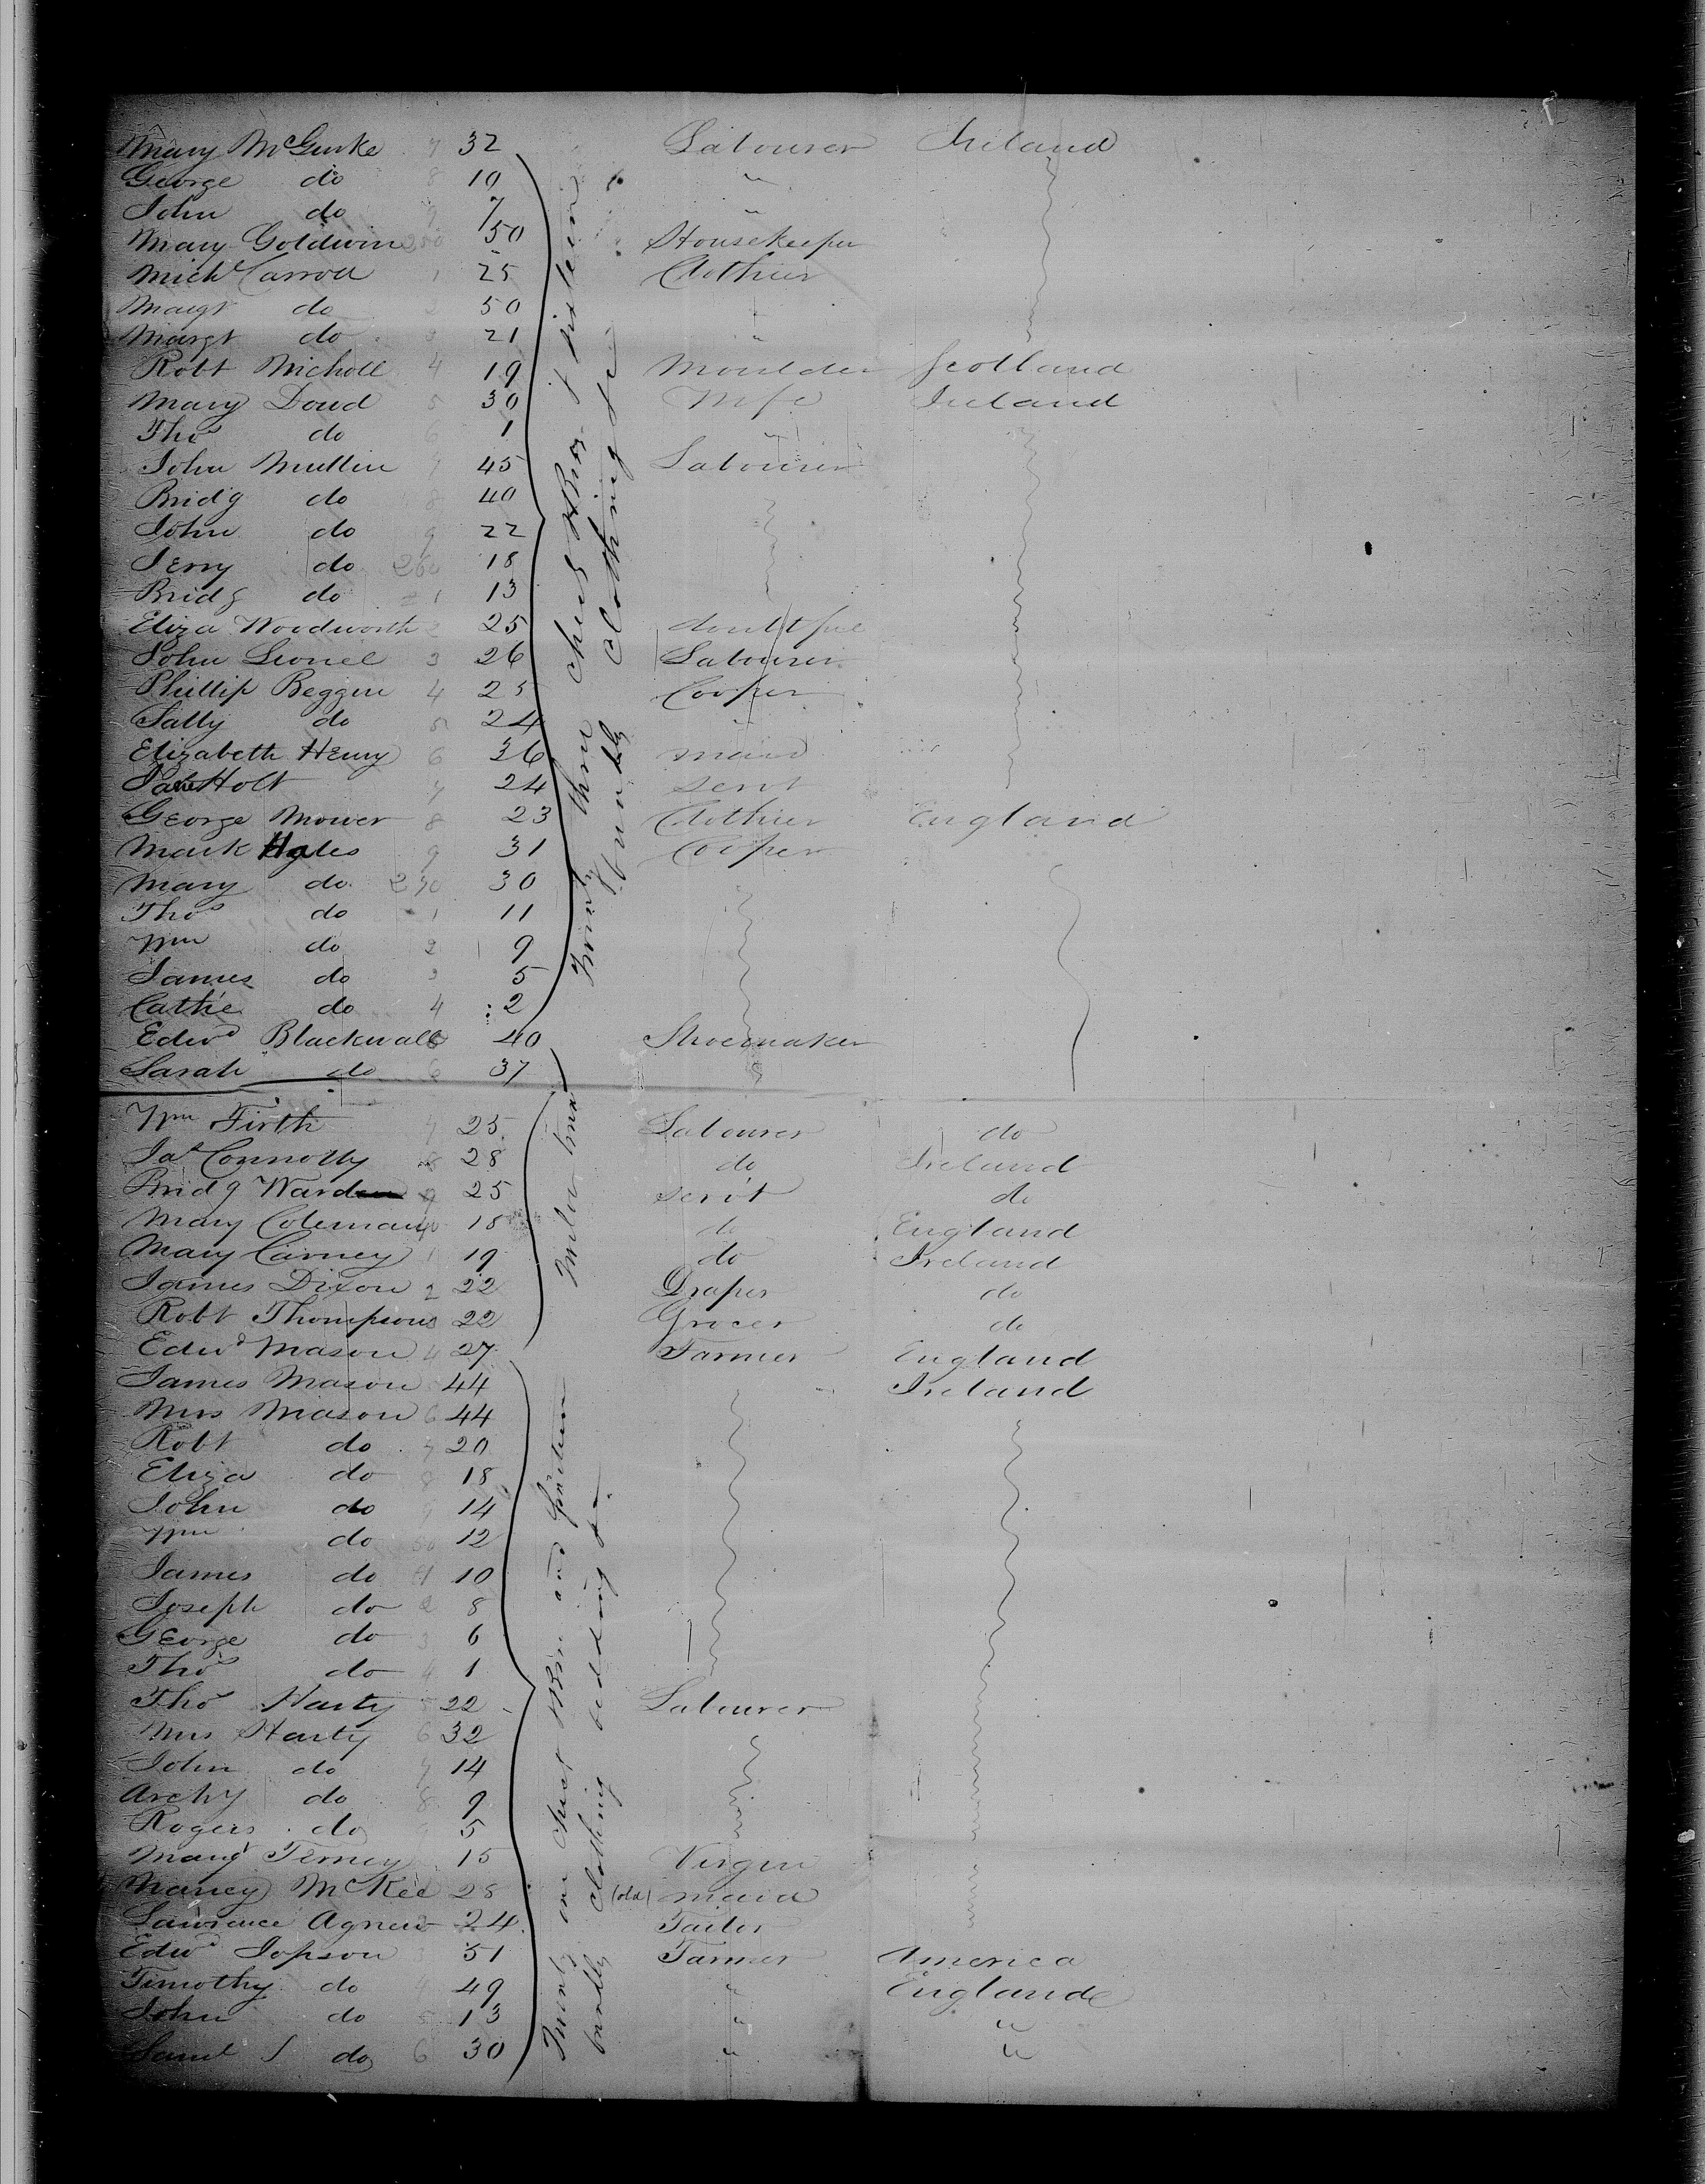 Mary McGurke 7 32 Labourer Ireland
George do 8 10 "
John do 9 7 "
Mary Goldwin 250 50 Housekeeper
Michl Carroll 1 25 Clothier
Margt do 2 50
Margt do 3 21 "
Robt Nicholl 4 19 Moulder Scotland
Mary Dowd 5 30 Wife Ireland
Thos do 6 1 "
John Mullin 7 45 Labourer
Bridg do 8 40
John do 9 22
Jerry do 260 18
Bridg do 1 13
Eliza Woodworth 2 25 doubtful
John Lionel 3 26 Labourer
Phillip Beggin 4 25 Cooper
Sally do 5 24 "
Elizabeth Henry 6 36 maid
Jane Holt 7 24 servt
George Mower 8 23 Clothier England
Mark Hales 9 31 Cooper
Mary do 270 30
Thos do 1 11
Wm do 2 9
James do 3 5
Cathe do 4 2
Edwd Blackwall 5 40 Shoemaker
Sarah do 6 37
Twenty three chests & boxes
bundles clothing &c
Wm Firth 7 25 Labourer do
Jas Connolly 8 28 do Ireland
Bridg Ward 9 25 servt do
Mary Coleman 18 do England
Mary Carney 1 19 do Ireland
James Dixon 2 22 Draper do
Robt Thompson 3 22 Grocer do
Edwd Mason 4 27 Farmer England
James Mason 44 Ireland
Mrs Mason 6 44
Robt do 7 20
Eliza do 8 18
John do 9 14
Wm do 12
James do 1 10
Joseph do 2 8
George do 3 6
Thos do 4 1
Thos Harty 5 22 Labourer
Mrs Harty 6 32
John do 7 14
Archy do 8 9
Rogers do 9 5
Margt Terney 15 Virgin
Nancy McKee 28 (old) maid
Lawrence Agnew 24 Tailor
Edwd Jopson 3 51 Farmer America
Timothy do 4 49 " England
John do 5 13 " "
Saml J do 6 30 " "
Twenty one chest
bundles clothing bedding &c